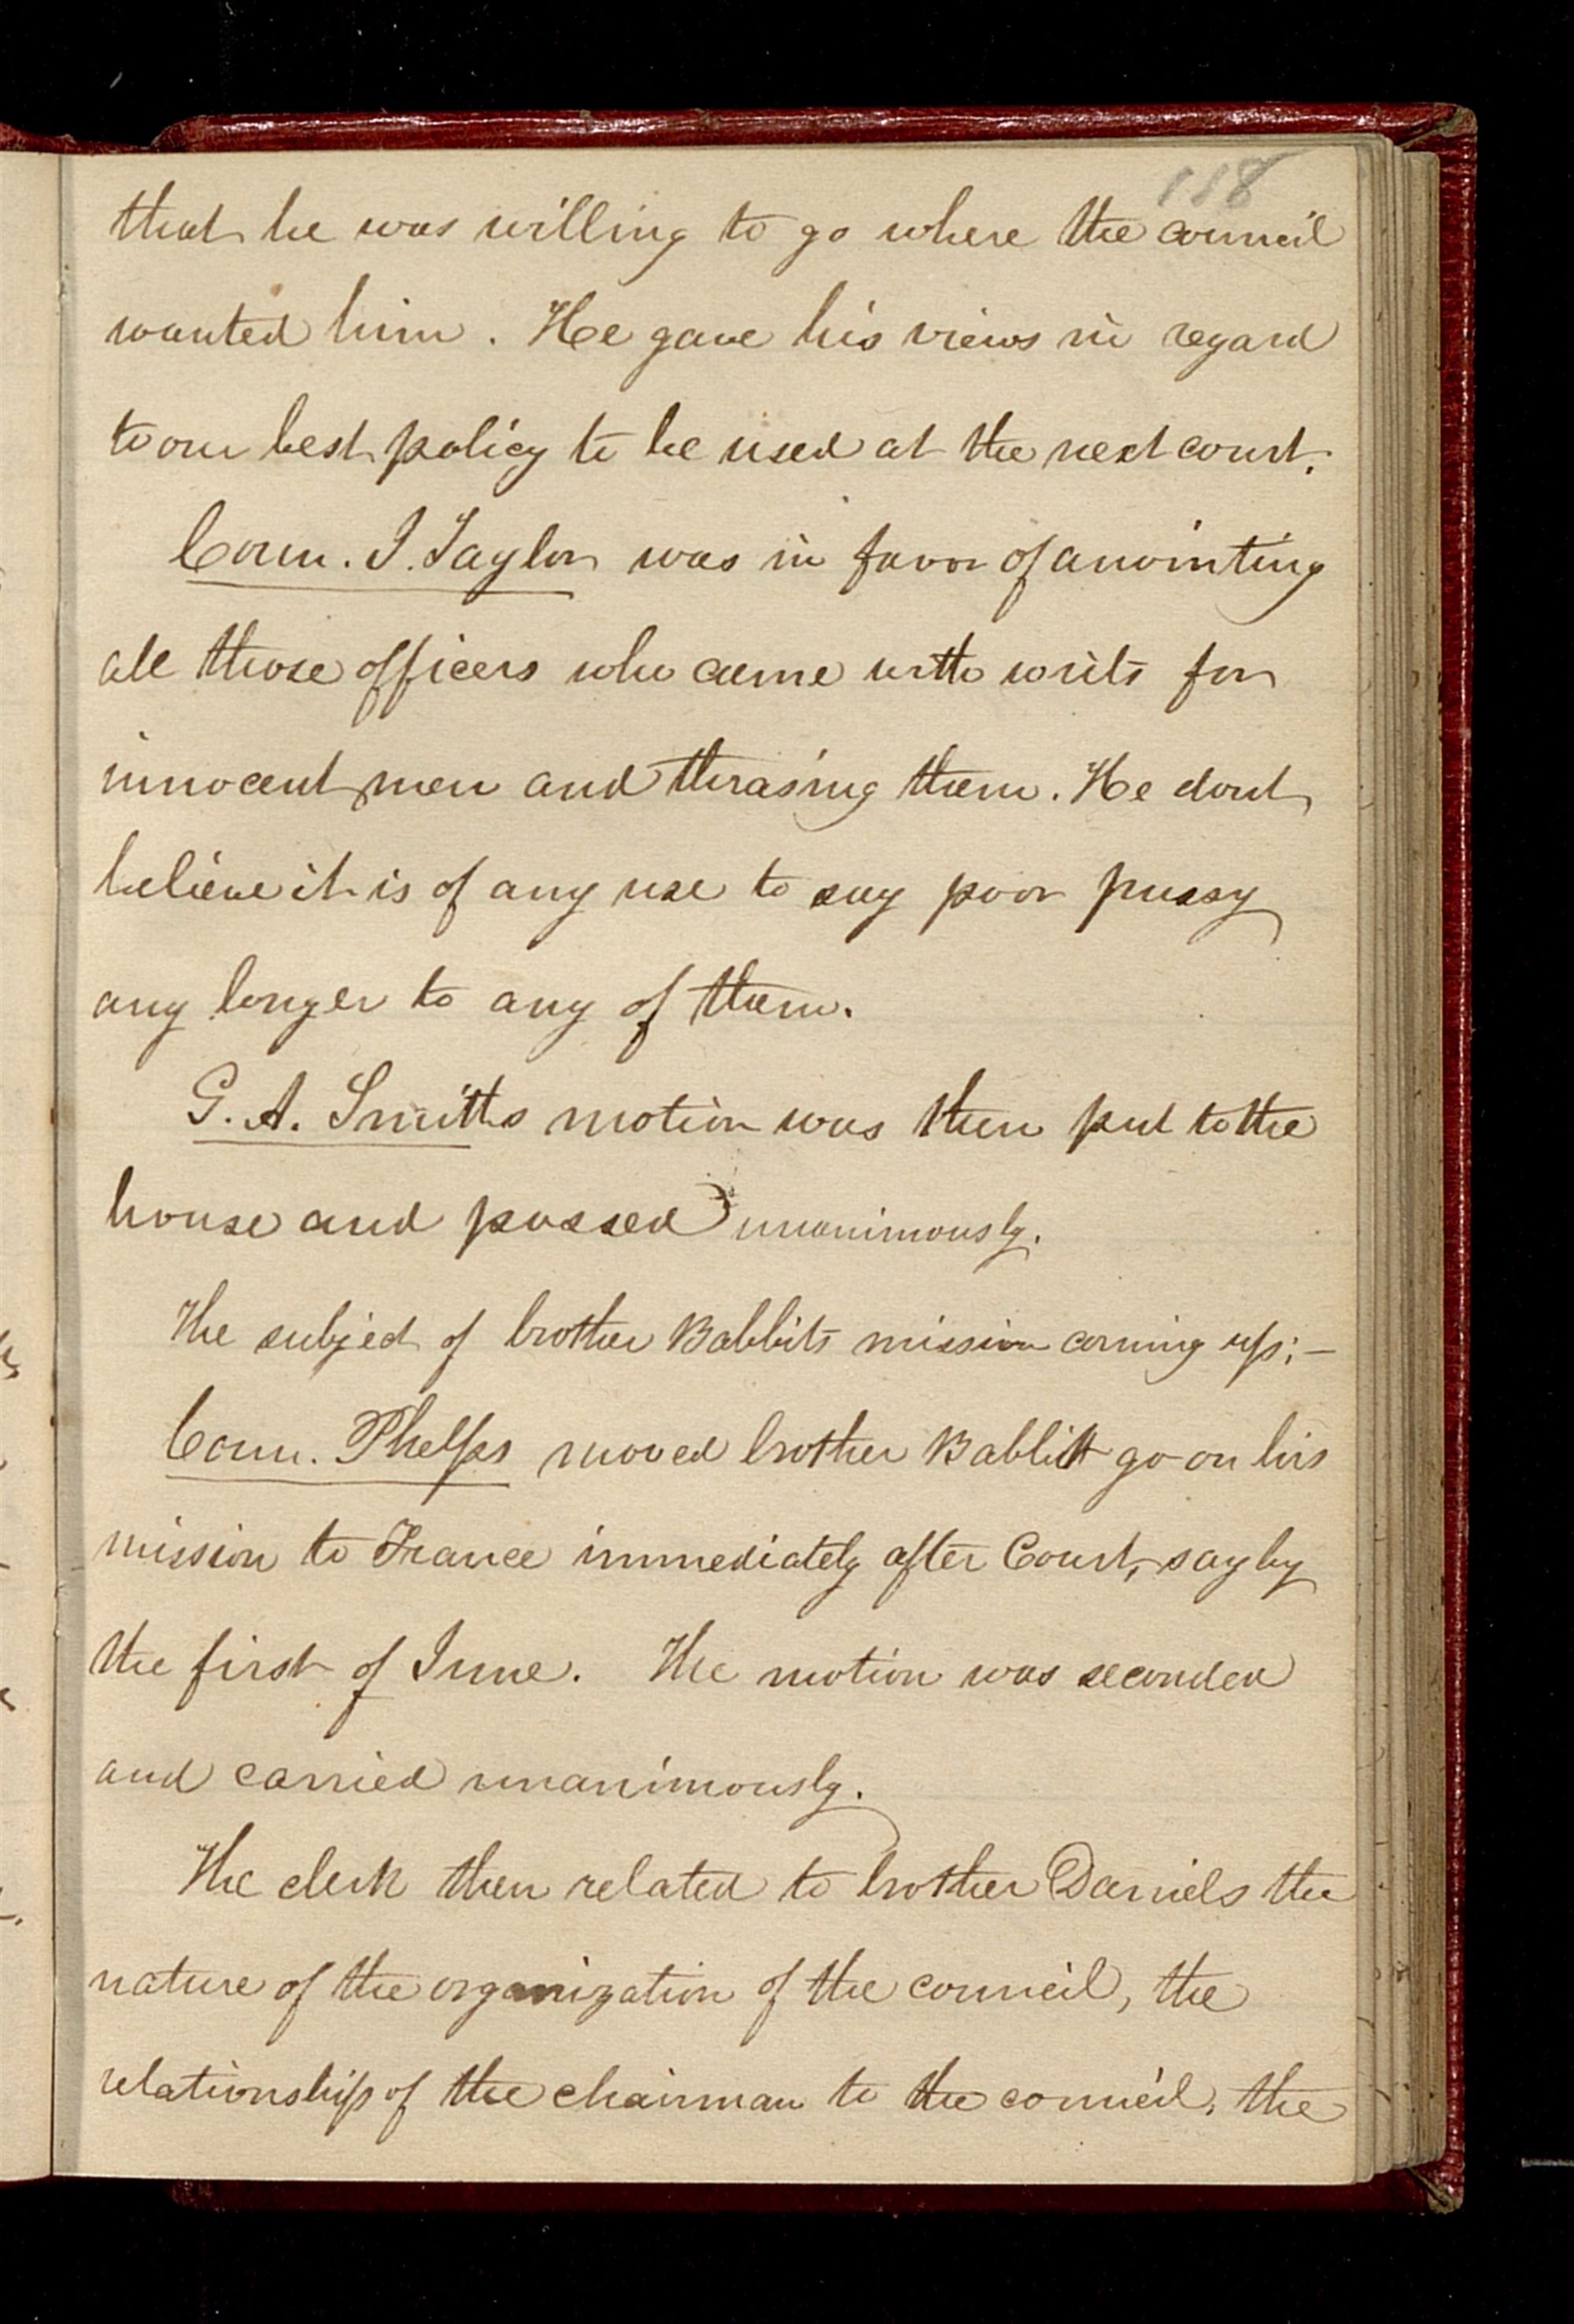 118
that he was willing to go where the council
wanted him. He gave his views in regard
to our best policy to be used at the next court.
Coun. J. Taylor was in favor of anointing
all those officers who came with writs for
innocent men and thrasing them. He dont
believe it is of any use to say poor pussy
any longer to any of them.
G. A. Smiths motion was then put to the
house and passed unanimously.
The subject of brother Babbits mission coming up;—
Coun. Phelps moved brother Babbitt go on his
mission to France immediately after Court, say by
the first of June. The motion was seconded
and carried unanimously.
The clerk then related to brother Daniels the
nature of the organization of the council, the
relationship of the chairman to the council, the